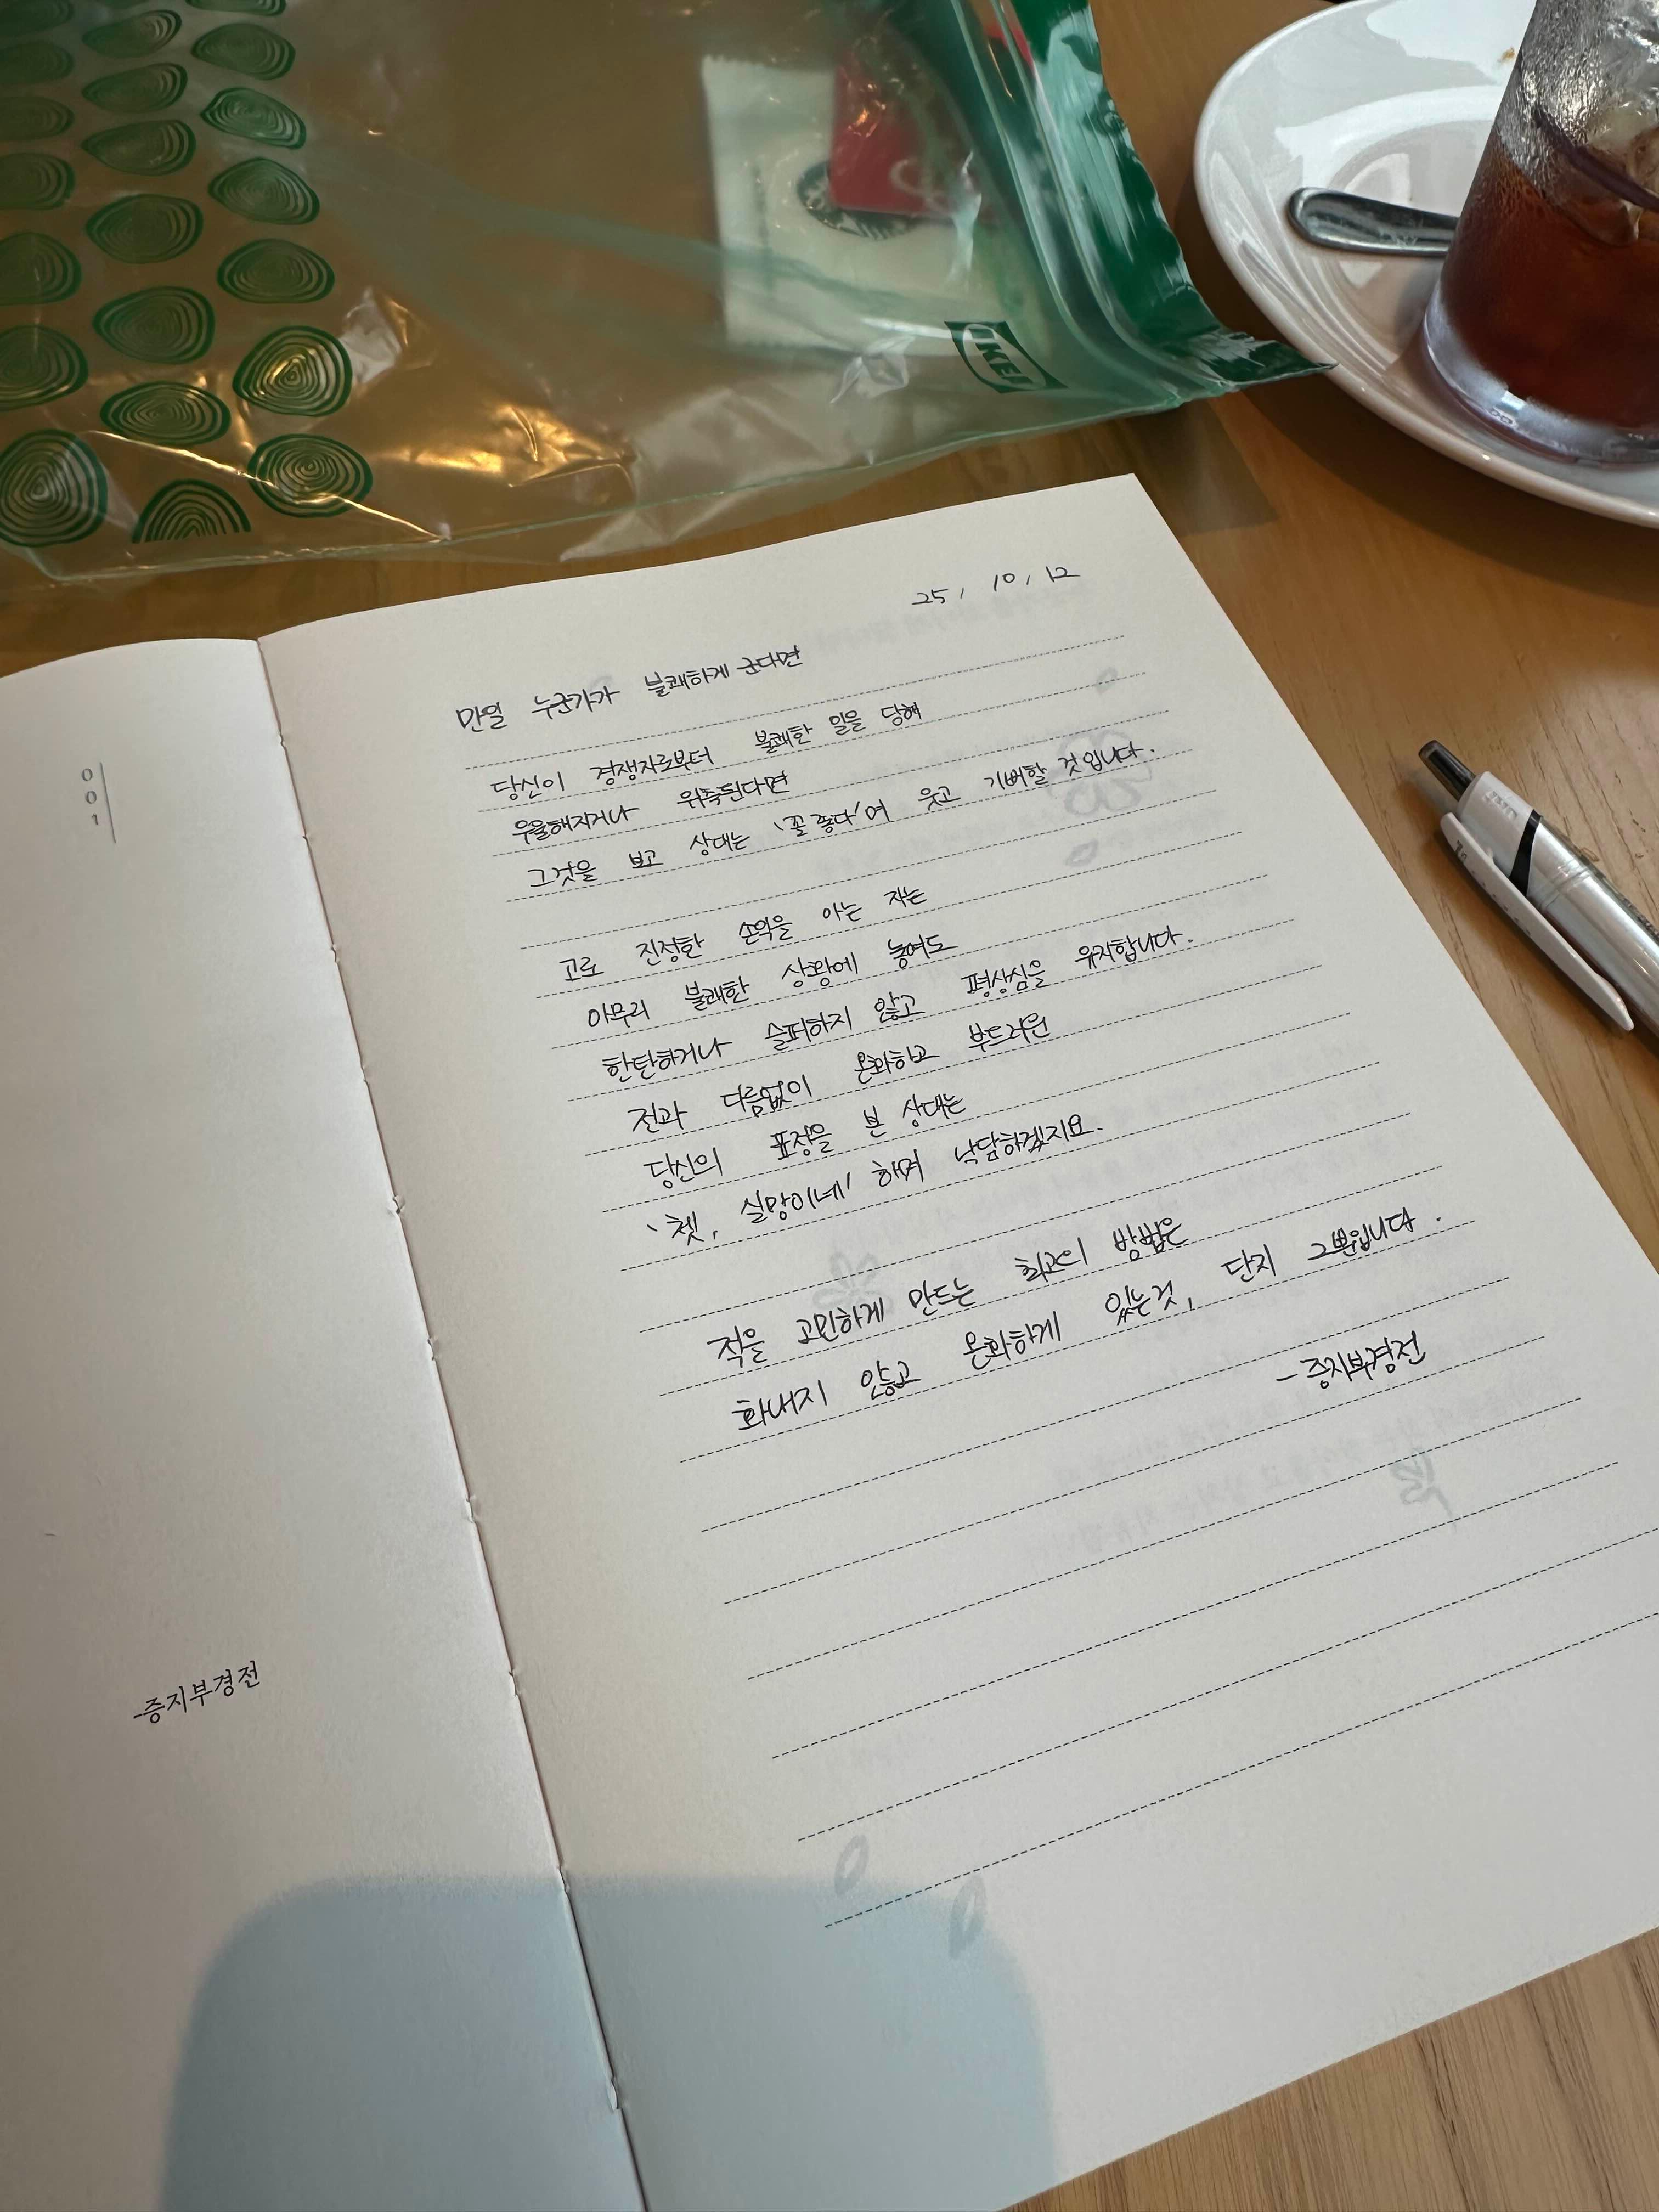 IKEA
001
-증지부경전
25. 10. 12
만일 누군가가 불쾌하게 군다면
당신이 경쟁자로부터 불쾌한 일을 당해
우울해지거나 위축된다면
그것을 보고 상대는 '꼴 좋다'며 웃고 기뻐할 것입니다.
고로 진정한 손익을 아는 자는
아무리 불쾌한 상황에 놓여도
한탄하거나 슬퍼하지 않고 평상심을 유지합니다.
전과 다름없이 온화하고 부드러운
당신의 표정을 본 상대는
'쳇, 실망이네' 하며 낙담하겠지요.
적을 고민하게 만드는 최고의 방법은
화내지 않고 온화하게 있는것, 단지 그뿐입니다.
-증지부경전